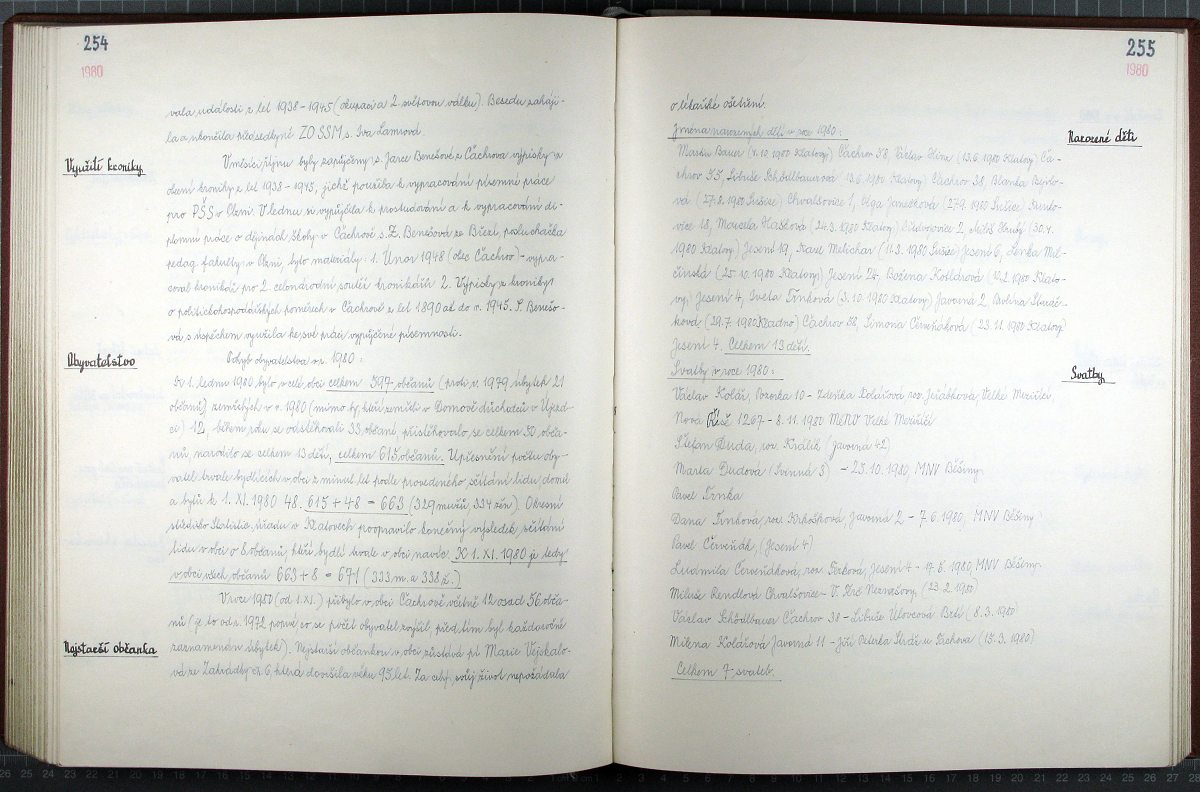 254
1980
vala události z let 1938 - 1945 (okupaci a 2. světovou válku). Besedu zaháji-
la a ukončila předsedkyně ZO SSM s. Iva Lamrová.
Využití kroniky
V měsíci říjnu byly zapůjčeny s. Jarce Benešové z Čachrova výpisky z
obecní kroniky z let 1938 - 1945, jichž použila k vypracování písemné práce
pro PŠS v Plzni. V lednu si vypůjčila k prostudování a k vypracování di-
plomní práce o dějinách školy v Čachrově s. Z. Benešová ze Březí, posluchačka
pedag. fakulty v Plzni, tyto materiály: 1. Únor 1948 (obec Čachrov) - vypra-
coval kronikář pro 2. celonárodní soutěž kronikářů 2. Výpisky z kroniky
o politickohospodářských poměrech v Čachrově z let 1890 až do r. 1945. S. Benešo-
vá s úspěchem využila ke své práci vypůjčené písemnosti.
Obyvatelstvo
Pohyb obyvatelstva v r. 1980:
K 1. lednu 1980 bylo v celé obci celkem 597 občanů (proti r. 1979 úbytek 21
občanů) zemřelých v r. 1980 (mimo ty, kteří zemřeli v Domově důchodců v Újezd-
ci) 12, během roku se odstěhovali 33 občané, přistěhovalo se celkem 50 obča-
nů narodilo se celkem 13 dětí, celkem 615 občanů. Upřesnění počtu oby-
vatel trvale bydlících v obci z minul. let podle provedeného sčítání lidu, domů
a bytů k 1. XI. 1980 48. 615 + 48 = 663 (329 mužů, 334 žen). Okresní
středisko Statistic. úřadu v Klatovech poopravilo konečný výsledek sčítání
lidu v obci o 8 občanů, kteří bydlí trvale v obci navíc. K 1. XI. 1980 je tedy
v obci všech občanů 663 + 8 = 671 (333 m. a 338 ž.)
V roce 1980 (od 1. XI.) přibylo v obci Čachrově včetně 12 osad 56 obča-
nů (je to od r. 1972 poprvé co se počet obyvatel zvýšil, před tím byl každoročně
Nejstarší občanka
zaznamenán úbytek). Nejstarší občankou v obci zůstává pí Marie Vejskalo-
vá ze Zahrádky čp. 6, která dovršila věku 95 let. Za celý svůj život nepožádala
255
1980
o lékařské ošetření.
Narozené děti
Jména narozených dětí v roce 1980:
Martin Bauer (4. 10. 1980 Klatovy) Čachrov 58, Václav (13. 6. 1980 Klatovy) Ča-
chrov 55, Libuše Schödlbauerová 13. 6. 1980 Klatovy) Čachrov 38, Blanka
vá (27. 8. 1980 Sušice) Chvalšovice 1, Olga Janečková (27. 9. 1980 Sušice)
vice 18, Marcela Hašková (24. 3. 1980 Klatovy) 2, Miloš (30. 4.
1980 Klatovy) Jesení 19, Karel Melichar (11. 3. 1980 Sušice) Jesení 6, Lenka Mel-
(25. 10. 1980 Klatovy) Jesení 24, Božena Kotlárová (10. 2. 1980 Klato-
vy) Jesení 4, Iveta Trnková (3. 10. 1980 Klatovy) Javorná 2,
ková (29. 7. 1980 Kladno) Čachrov 58, Simona Červeňáková (23. 11. 1980 Klatovy)
Jesení 4. Celkem 13 dětí.
Svatby
Svatby v roce 1980:
Václav Kolář, 10 - Zdeňka Kolářová, roz. Jeřábková, Velké Meziříčí,
Nová Říše 1267 - 8. 11. 1980 MěNV Velké Meziříčí
Štefan Duda, roz. Králík (Javorná 42)
Marta Dudová (Svinná 3) - 25. 10. 1980, MNV Běšiny
Pavel Trnka
Dana Trnková, roz. Krkošková Javorná 2 - 7. 6. 1980, MNV Běšiny
Pavel Červeňák, (Jesení 4)
Ludmila Červeňáková, roz. Jesení 4 - 17. 6. 1980, MNV Běšiny
Miluše Rendlová Chvalšovice - V. Nezvašovy (23. 2. 1980)
Václav Schödlbauer Čachrov 38 - Libuše Úlovcová Beti (8. 3. 1980)
Milena Kolářová Javorná 11 - Jiří Peterka Stráž u Tachova (15. 3. 1980)
Celkem 7 svateb.